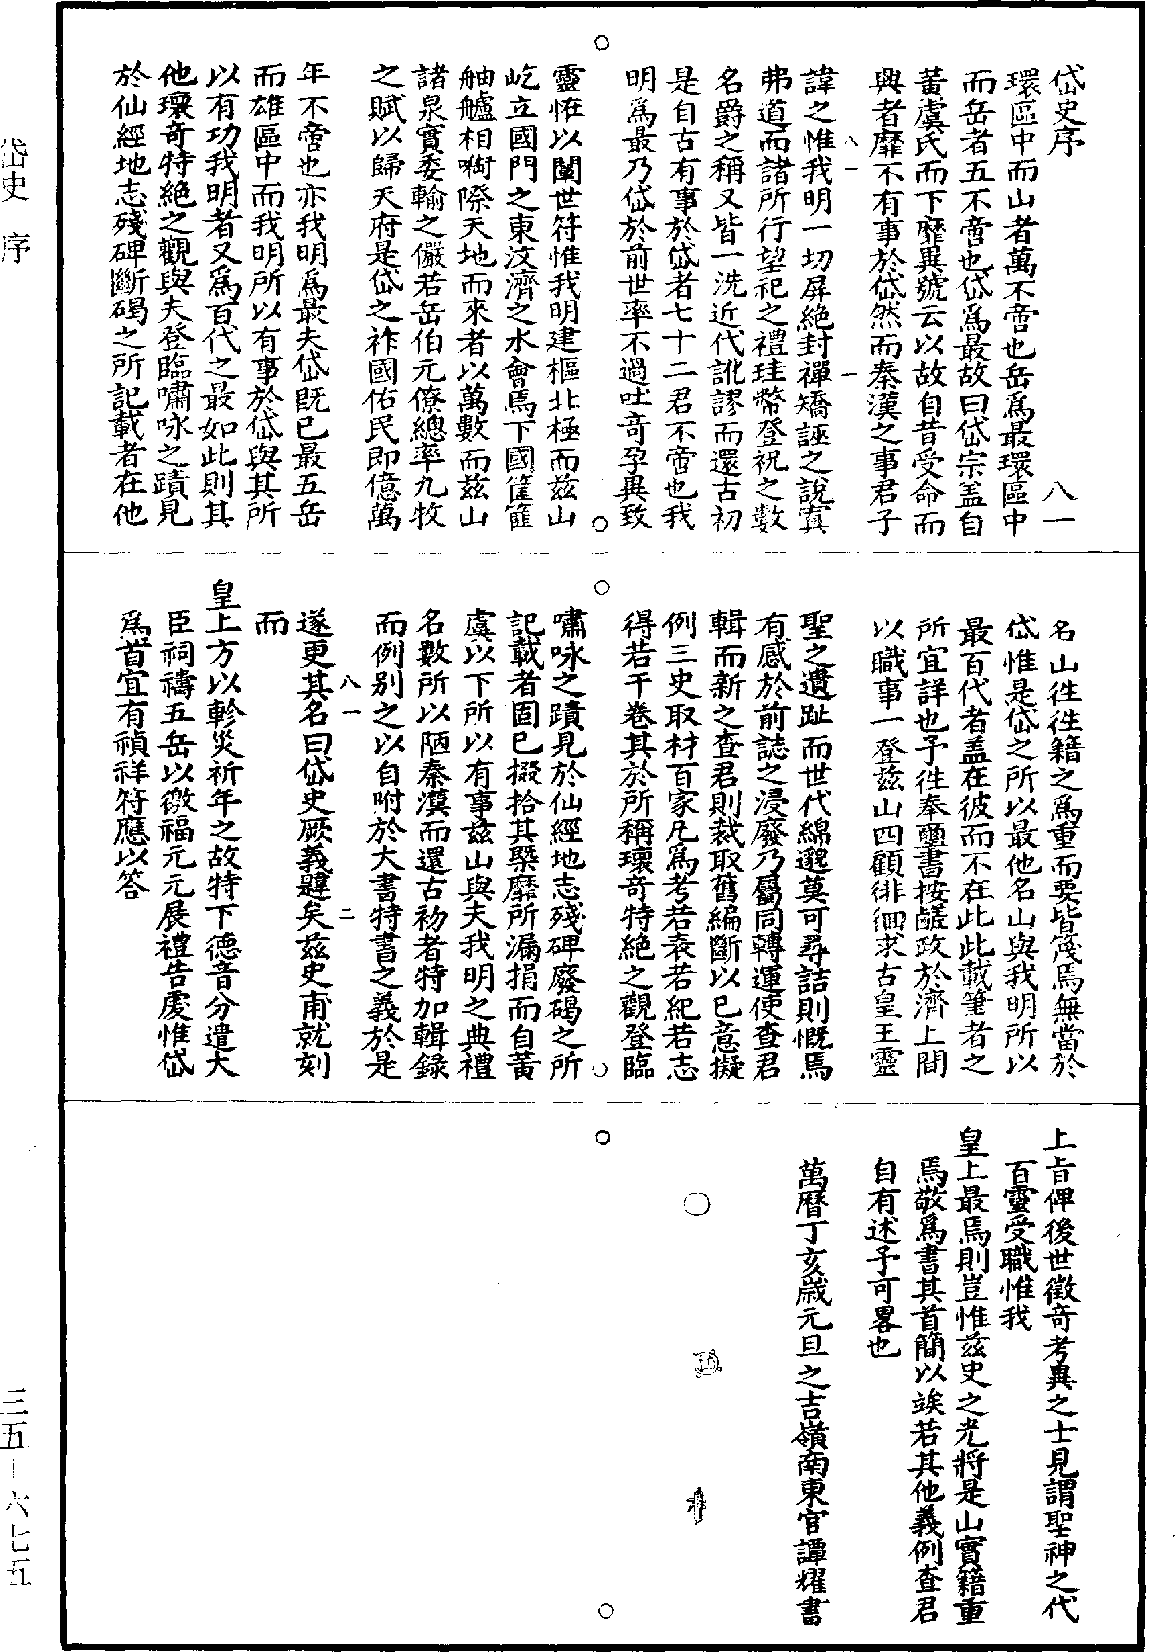 岱史序　八一
環區中而山者萬不啻也岳爲最環區中
而岳者五不啻也岱爲最故曰岱宗盖自
黃虞氏而下靡異號云以故自昔受命而
興者靡不有事於岱然而秦漢之事君子
八一　一
諱之惟我明一切屏絕封禪矯誣之說寘
弗道而諸所行望祀之禮珪幣登祝之數
名爵之稱又皆一洗近代訛謬而還古初
是自古有事於岱者七十二君不啻也我
明爲最乃岱於前世率不過吐奇孕異致
靈恠以闡世符惟我明建樞北極而兹山
屹立國門之東汶濟之水會焉下國筐篚
舳艫相啣際天地而來者以萬數而兹山
諸泉實委輸之儼若岳伯元僚總率九牧
之賦以歸天府是岱之祚國佑民即億萬
年不啻也亦我明爲最夫岱既已最五岳
而雄區中而我明所以有事於岱與其所
以有功我明者又爲百代之最如此則其
他瓌奇特絕之觀與夫登臨嘯咏之蹟見
於仙經地志殘碑斷碣之所記載者在他
名山徃徃籍之爲重而要皆蔑焉無當於
岱惟是岱之所以最他名山與我明所以
最百代者盖在彼而不在此此載筆者之
所宜詳也予徃奉璽書按鹺政於濟上間
以職事一登兹山四顧徘徊求古皇王靈
聖之遺趾而世代綿邈莫可尋詰則慨焉
有感於前誌之浸廢乃屬同轉運使查君
輯而新之查君則裁取舊編斷以已意擬
例三史取材百家凡爲考若表若紀若志
得若干卷其於所稱瓌奇特絕之觀登臨
嘯咏之蹟見於仙經地志殘碑廢碣之所
記載者固已掇拾其槩靡所漏捐而自黃
虞以下所以有事兹山與夫我明之典禮
名數所以陋秦漢而還古初者特加輯錄
而例别之以自咐於大書特書之義於是
八一　二
遂更其名曰岱史厥義韙矣兹史甫就刻
而
皇上方以軫災祈年之故特下德音分遣大
臣祠禱五岳以徼福元元展禮告虔惟岱
爲首宜有禎祥符應以答
上旨俾後世徵奇考異之士見謂聖神之代
百靈受職惟我
皇上最焉則豈惟兹史之光將是山實籍重
焉敬爲書其首簡以竢若其他義例查君
自有述予可畧也
萬曆丁亥歲元旦之吉嶺南東官譚耀書
岱史　序
三五—六七五